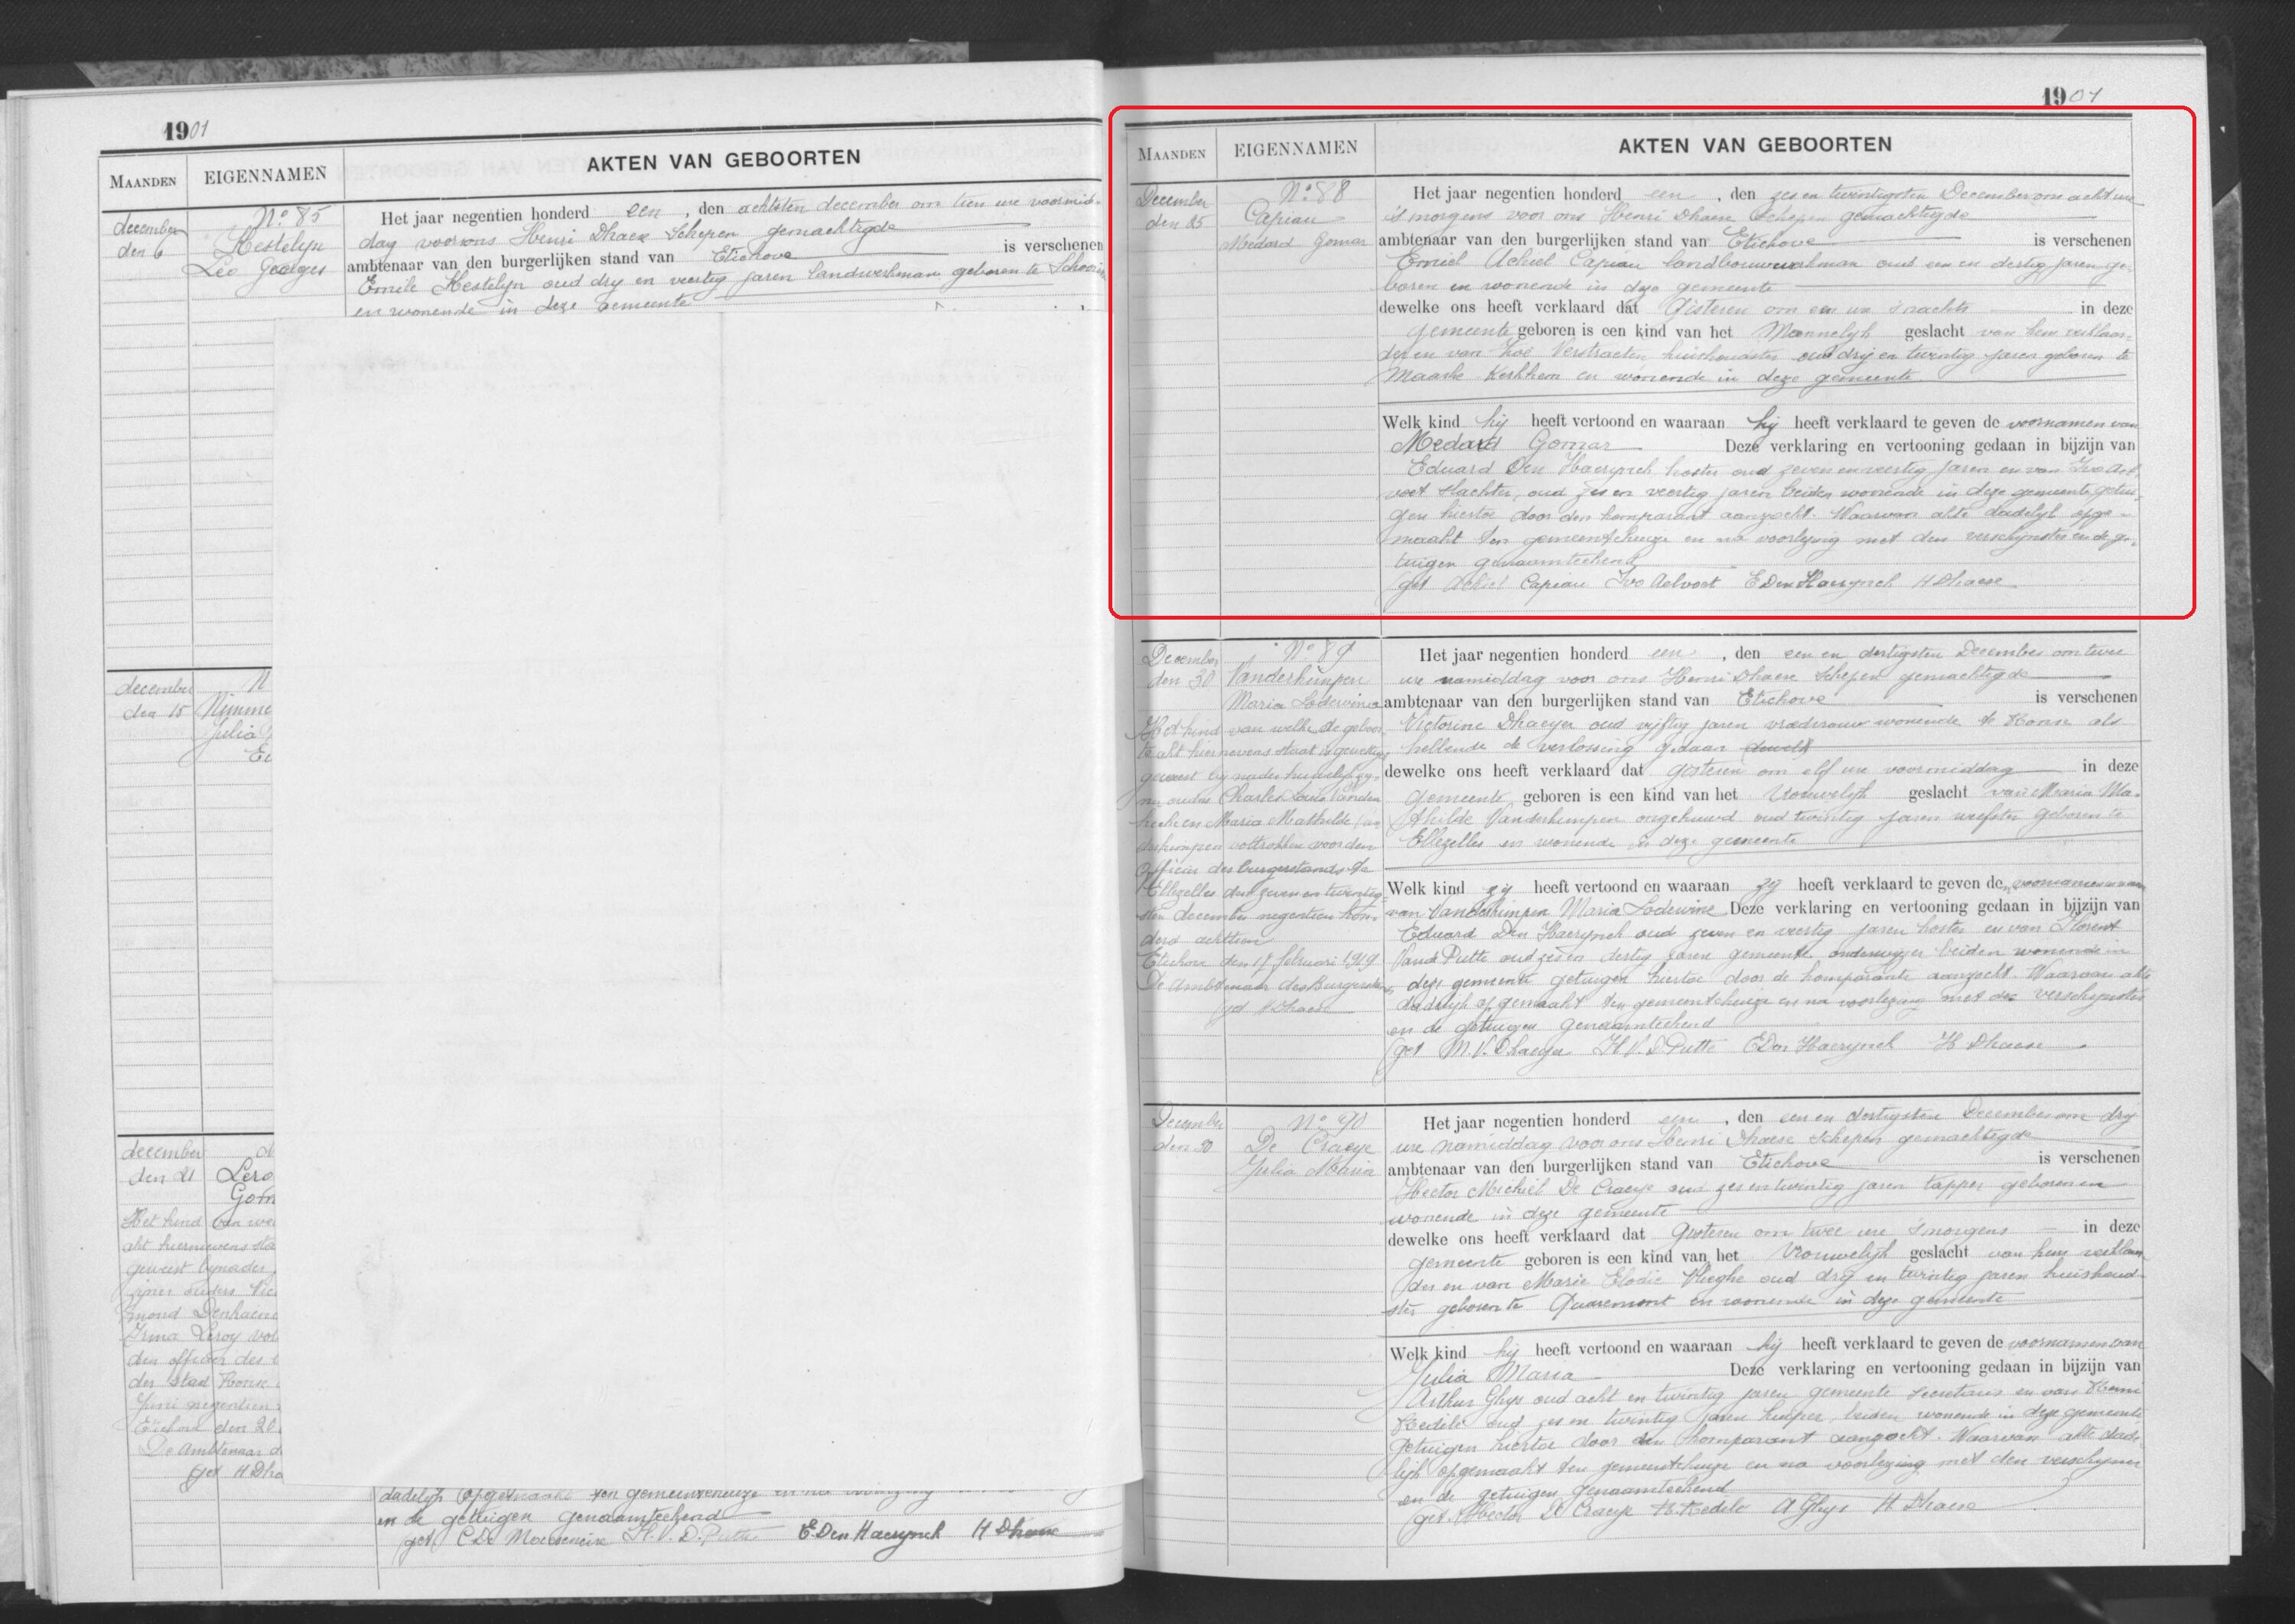 1901
MAANDEN EIGENNAMEN AKTEN VAN GEBOORTEN
december
den 6
Nº 85
Kestelyn
Léo Georges
Het jaar negentien honderd een, den achtsten december om tien ure voormid-
dag voor ons Henri Dhaese Schepen gemachtigde
ambtenaar van den burgerlijken stand van Etichove is verschenen
Emile Kestelyn oud dry en veertig jaren landwerkman geboren te
en wonende in deze gemeente
december
den 15
N
Julia
december
den 21
Lero
Gom
Het kind van
akt hiernevens sta
geweest bynader
mond Denhaene
Irma Leroy vol
den officier des
der stad Ronse
Juni negentien
Etichove den 20
De Ambtenaar d
get H Dha
dadelijk opgemaakt ten gemeentehuize en na voorlezing
en de getuigen genaamteekend
get C De H. V. D. Putte E. Den Haerynck H Dhaese
1901
MAANDEN EIGENNAMEN AKTEN VAN GEBOORTEN
December
den 25
Nº 88
Capiau
Médard Gomar
Het jaar negentien honderd een, den zes en twintigsten December om acht ure
's morgens voor ons Henri Dhaese Schepen gemachtigde
ambtenaar van den burgerlijken stand van Etichove is verschenen
Emiel Achiel Capiau landbouwwerkman oud een en dertig jaren ge-
boren en wonende in deze gemeente
dewelke ons heeft verklaard dat Gisteren om een ure 's nachts in deze
gemeente geboren is een kind van het Mannelijk geslacht van hem verklaar-
der en van Zoë Verstraeten huishoudster oud drij en twintig jaren geboren te
Maarke-Kerkhem en wonende in deze gemeente
Welk kind hij heeft vertoond en waaraan hij heeft verklaard te geven de voornamen van
Medard Gomar Deze verklaring en vertooning gedaan in bijzijn van
Eduard Den Haerynck koster oud zeven en veertig jaren en van Ivo Ael-
voet slachter, oud zes en veertig jaren beiden wonende in deze gemeente getui-
gen hiertoe door den komparant aanzocht. Waarvan akte dadelijk opge-
maakt ten gemeentehuize en na voorlezing met den verschijnster en de ge-
tuigen genaamteekend
(get Achiel Capiau Ivo Aelvoet E Den Haerynck H Dhaese
December
den 30
Nº 89
Vanderkimpen
Maria Lodewina
Het kind van welke de geboor-
te akt hiernevens staat is gewettigd
geweest bij nader huwelijk zij-
ner ouders Charles Louis Vanden
hecke en Maria Mathilde Van
derkimpen voltrokken voor den
Officier des burgerstands te
Ellezelles den zeven en twintig-
sten december negentien hon-
derd achttien
Etichove den 17 februari 1919
De Ambtenaar des Burgerstands
get H Dhaese
Het jaar negentien honderd een, den een en dertigsten December om twee
ure namiddag voor ons Henri Dhaese Schepen gemachtigde
ambtenaar van den burgerlijken stand van Etichove is verschenen
Victorine Dhaeyer oud vijftig jaren vroedvrouw wonende te Ronse als
hebbende de verlossing gedaan
dewelke ons heeft verklaard dat gisteren om elf ure voormiddag in deze
gemeente geboren is een kind van het Vrouwelijk geslacht van Maria Ma-
thilde Vanderkimpen ongehuwd oud twintig jaren weefster geboren te
Ellezelles en wonende in deze gemeente
Welk kind zij heeft vertoond en waaraan zij heeft verklaard te geven de voornamen
van Vanderkimpen Maria Lodewine Deze verklaring en vertooning gedaan in bijzijn van
Eduard Den Haerynck oud zeven en veertig jaren koster en van Florent
Vande Putte oud zes en dertig jaren gemeente onderwijzer beiden wonende in
deze gemeente getuigen hiertoe door de komparante aanzocht. Waarvan akte
dadelijk opgemaakt ten gemeentehuize en na voorlezing met de verschijnster
en de getuigen genaamteekend
(get M. V. Dhaeyer H V. D Putte E Den Haerynck H Dhaese
December
den 30
Nº 90
De Craeye
Julia Maria
Het jaar negentien honderd een, den een en dertigsten December om dry
ure namiddag voor ons Henri Dhaese Schepen gemachtigde
ambtenaar van den burgerlijken stand van Etichove is verschenen
Hector Michiel De Craeye oud zes en twintig jaren tapper geboren en
wonende in deze gemeente
dewelke ons heeft verklaard dat Gisteren om twee ure 's morgens in deze
gemeente geboren is een kind van het Vrouwelijk geslacht van hem verklaar-
der en van Marie Elodie Vlieghe oud drij en twintig jaren huishoud-
ster geboren te Quaremont en wonende in deze gemeente
Welk kind hij heeft vertoond en waaraan hij heeft verklaard te geven de voornamen van
Julia Maria Deze verklaring en vertooning gedaan in bijzijn van
Arthur Ghys oud acht en twintig jaren gemeente secretaris en van Remi
Redele oud zes en twintig jaren kuiper, beiden wonende in deze gemeente
getuigen hiertoe door den komparant aanzocht. Waarvan akte dade-
lijk opgemaakt ten gemeentehuize en na voorlezing met den verschijner
en de getuigen genaamteekend
get. Hector De Craeye R. Redele A Ghys H Dhaese